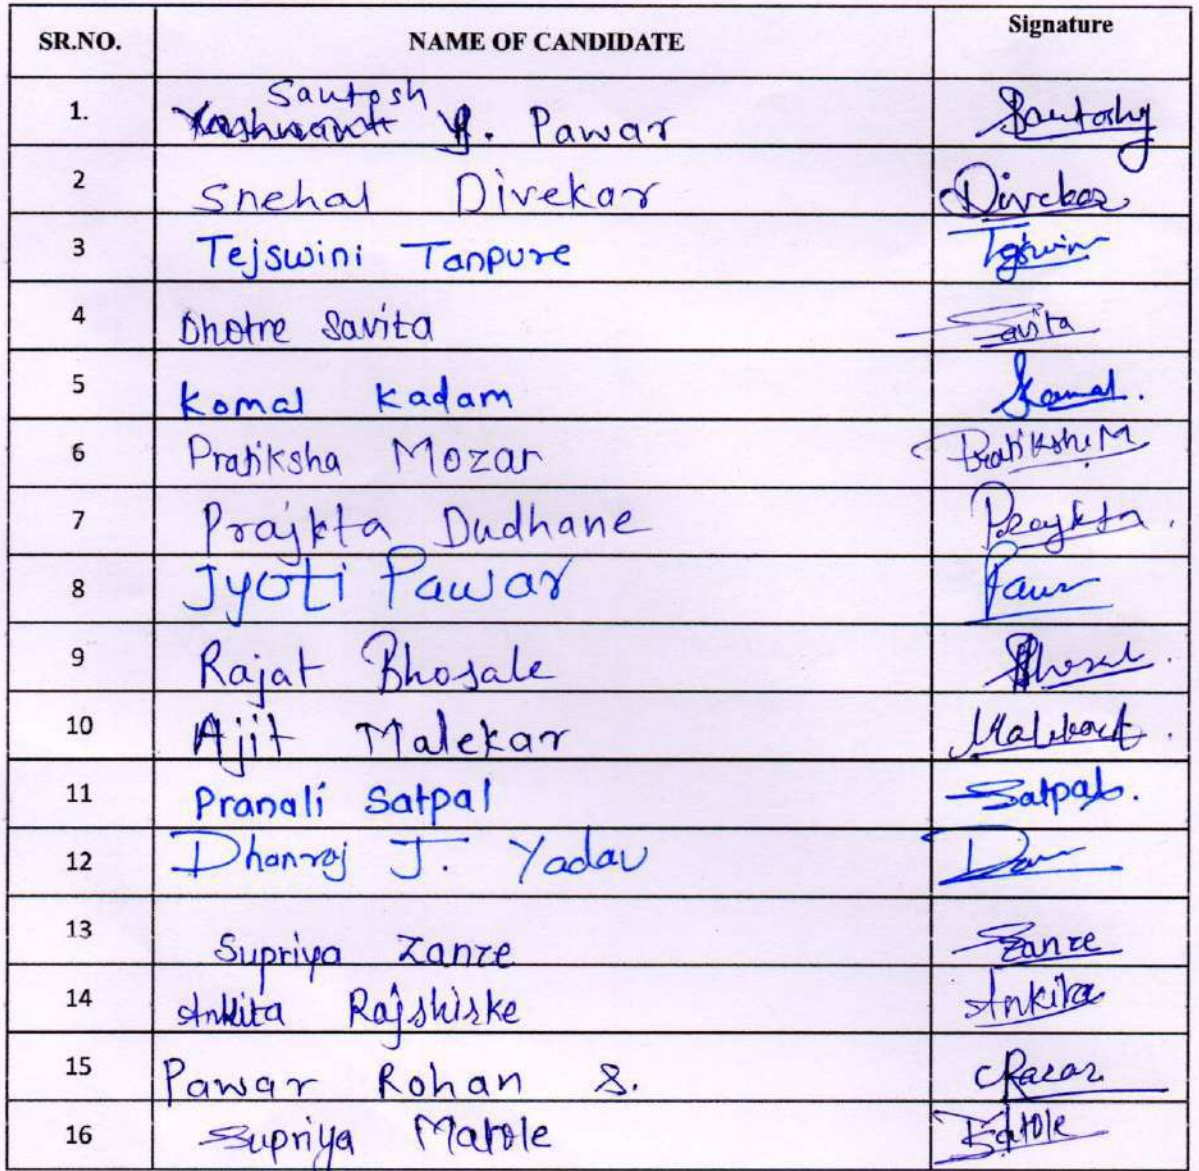 SR.NO. NAME OF CANDIDATE Signature
1. Santosh Y. Pawar Santosh
2 Snehal Divekar Divekar
3 Tejswini Tanpure Tejswini
4 Dhotre Savita Savita
5 Komal Kadam Komal.
6 Pratiksha Mozar Pratiksha M
7 Prajkta Dudhane Prajkta.
8 Jyoti Pawar
9 Rajat Bhosale
10 Ajit Malekar
11 Pranali Satpal Satpal.
12 Dhanraj J. Yadav
13 Supriya Zanre Zanre
14 Ankita Rajshiske Ankita
15 Pawar Rohan S.
16 Supriya Matole